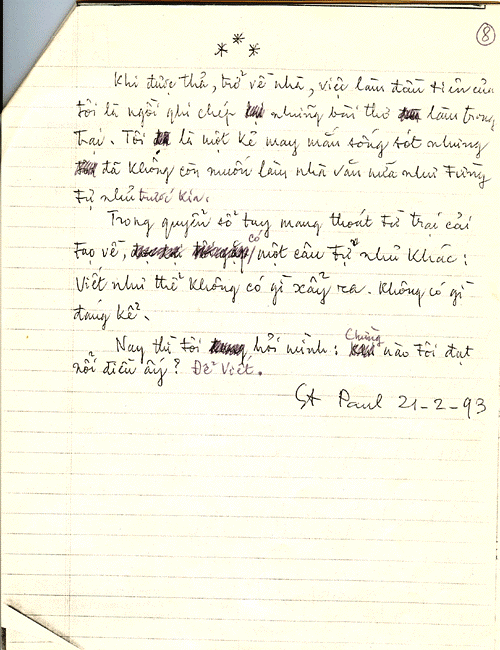 8
* * *
Khi được thả, trở về nhà, việc làm đầu tiên của
tôi là ngồi ghi chép những bài thơ làm trong
trại. Tôi là một kẻ may mắn sống sót nhưng
đã không còn muốn làm nhà văn nữa như từng
tự nhủ trước kia.
Trong quyển sổ tay mang thoát từ trại cải
tạo về, có một câu tự nhủ khác:
Viết như thể không có gì xẩy ra. Không có gì
đáng kể.
Nay thì tôi hỏi mình: Chừng nào tôi đạt
nổi điều ấy? Để viết.
St Paul 21-2-93